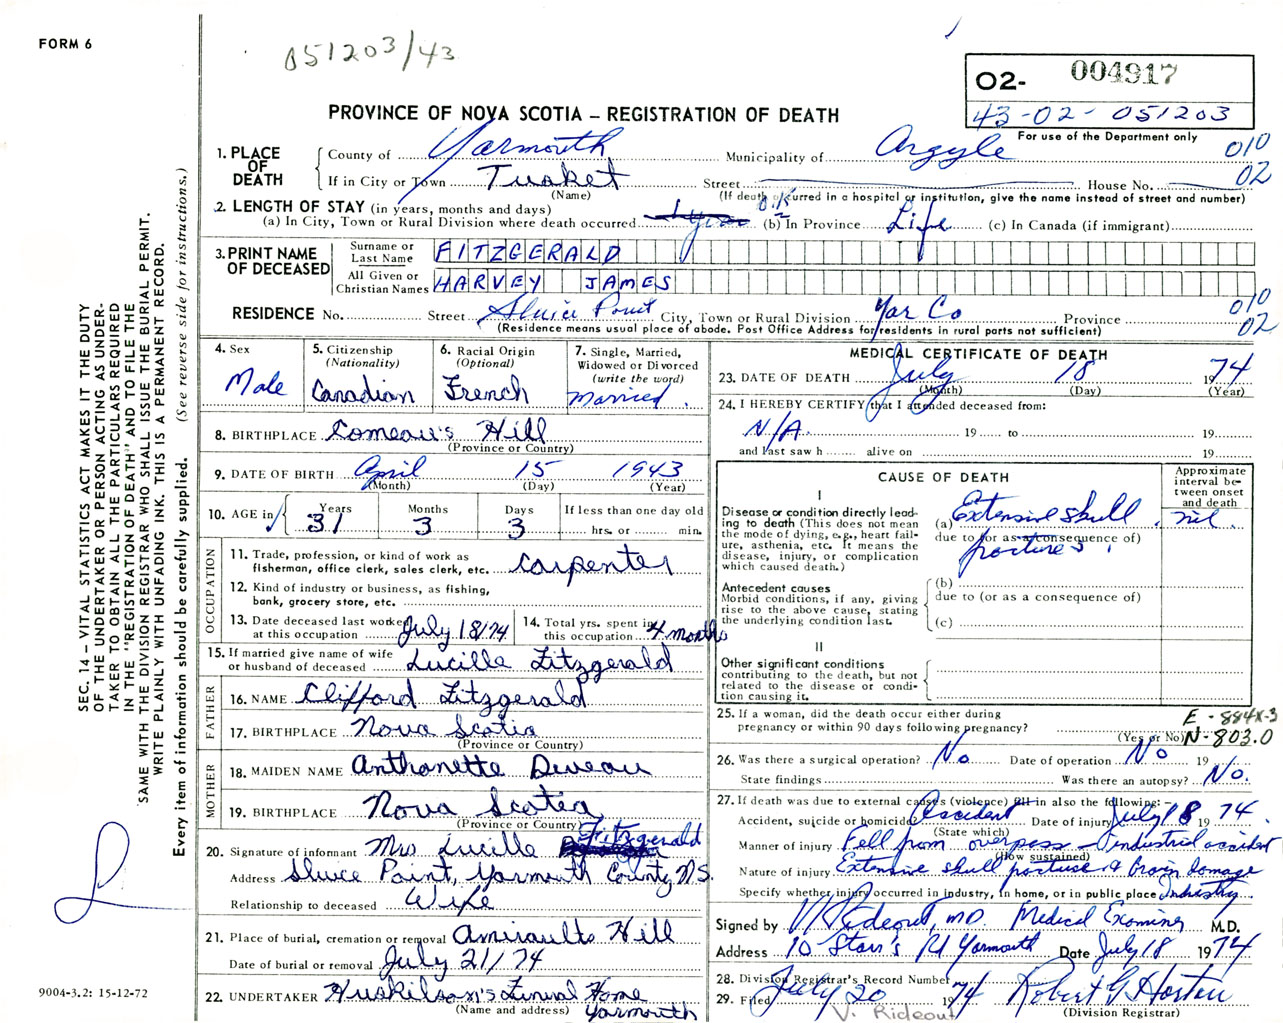 FORM 6
051203/43
02- 004917
43-02-051203
For use of the Department only
PROVINCE OF NOVA SCOTIA – REGISTRATION OF DEATH
1. PLACE OF DEATH
County of Yarmouth Municipality of Argyle 010
If in City or Town Tusket Street House No. 02
(Name) (If death occurred in a hospital or institution, give the name instead of street and number)
2. LENGTH OF STAY (in years, months and days) OK
(a) In City, Town or Rural Division where death occurred 1 year (b) In Province Life (c) In Canada (if immigrant)
3. PRINT NAME OF DECEASED
Surname or Last Name FITZGERALD
All Given or Christian Names HARVEY JAMES
RESIDENCE No. Street Sluice Point City, Town or Rural Division Yar Co Province 010 02
(Residence means usual place of abode. Post Office Address for residents in rural parts not sufficient)
4. Sex Male
5. Citizenship (Nationality) Canadian
6. Racial Origin (Optional) French
7. Single, Married, Widowed or Divorced (write the word) Married.
8. BIRTHPLACE Comeau's Hill
(Province or Country)
9. DATE OF BIRTH April 15 1943
(Month) (Day) (Year)
10. AGE in Years 31 Months 3 Days 3 If less than one day old hrs. or min.
OCCUPATION
11. Trade, profession, or kind of work as fisherman, office clerk, sales clerk, etc. Carpenter
12. Kind of industry or business, as fishing, bank, grocery store, etc.
13. Date deceased last worked at this occupation July 18/74
14. Total yrs. spent in this occupation 4 months
15. If married give name of wife or husband of deceased Lucille Fitzgerald
FATHER
16. NAME Clifford Fitzgerald
17. BIRTHPLACE Nova Scotia
(Province or Country)
MOTHER
18. MAIDEN NAME Anthonette Deveau
19. BIRTHPLACE Nova Scotia
(Province or Country)
20. Signature of informant Mrs Lucille Fitzgerald
Address Sluice Point, Yarmouth County N.S.
Relationship to deceased Wife
21. Place of burial, cremation or removal Amiraults Hill
Date of burial or removal July 21/74
22. UNDERTAKER Huskilson's Funeral Home
(Name and address) Yarmouth
MEDICAL CERTIFICATE OF DEATH
23. DATE OF DEATH July 18 1974
(Month) (Day) (Year)
24. I HEREBY CERTIFY that I attended deceased from:
N/A 19 to 19
and last saw h alive on 19
CAUSE OF DEATH
Approximate interval between onset and death
I
Disease or condition directly leading to death (This does not mean the mode of dying, e.g., heart failure, asthenia, etc. It means the disease, injury, or complication which caused death.)
(a) Extensive skull nil.
due to (or as a consequence of)
fractures.
Antecedent causes
Morbid conditions, if any, giving rise to the above cause, stating the underlying condition last.
(b)
due to (or as a consequence of)
(c)
II
Other significant conditions contributing to the death, but not related to the disease or condition causing it.
25. If a woman, did the death occur either during pregnancy or within 90 days following pregnancy?
(Yes or No)
E-884X-3
N-803.0
26. Was there a surgical operation? No Date of operation No 19
State findings Was there an autopsy? No.
27. If death was due to external causes (violence) fill in also the following:
Accident, suicide or homicide Accident Date of injury July 18 1974
(State which)
Manner of injury Fell from overpass – industrial accident
(How sustained)
Nature of injury Extensive skull fracture & brain damage
Specify whether injury occurred in industry, in home, or in public place Industry
Signed by V Rideout, MD. Medical Examiner M.D.
Address 10 Starr's Rd Yarmouth Date July 18 1974
28. Division Registrar's Record Number
29. Filed July 20 1974 Robert G Horton
(Division Registrar)
V. Rideout
SEC. 14 – VITAL STATISTICS ACT MAKES IT THE DUTY
OF THE UNDERTAKER OR PERSON ACTING AS UNDER-
TAKER TO OBTAIN ALL THE PARTICULARS REQUIRED
IN THE "REGISTRATION OF DEATH" AND TO FILE THE
SAME WITH THE DIVISION REGISTRAR WHO SHALL ISSUE THE BURIAL PERMIT.
WRITE PLAINLY WITH UNFADING INK. THIS IS A PERMANENT RECORD.
Every item of information should be carefully supplied. (See reverse side for instructions.)
9004-3.2: 15-12-72